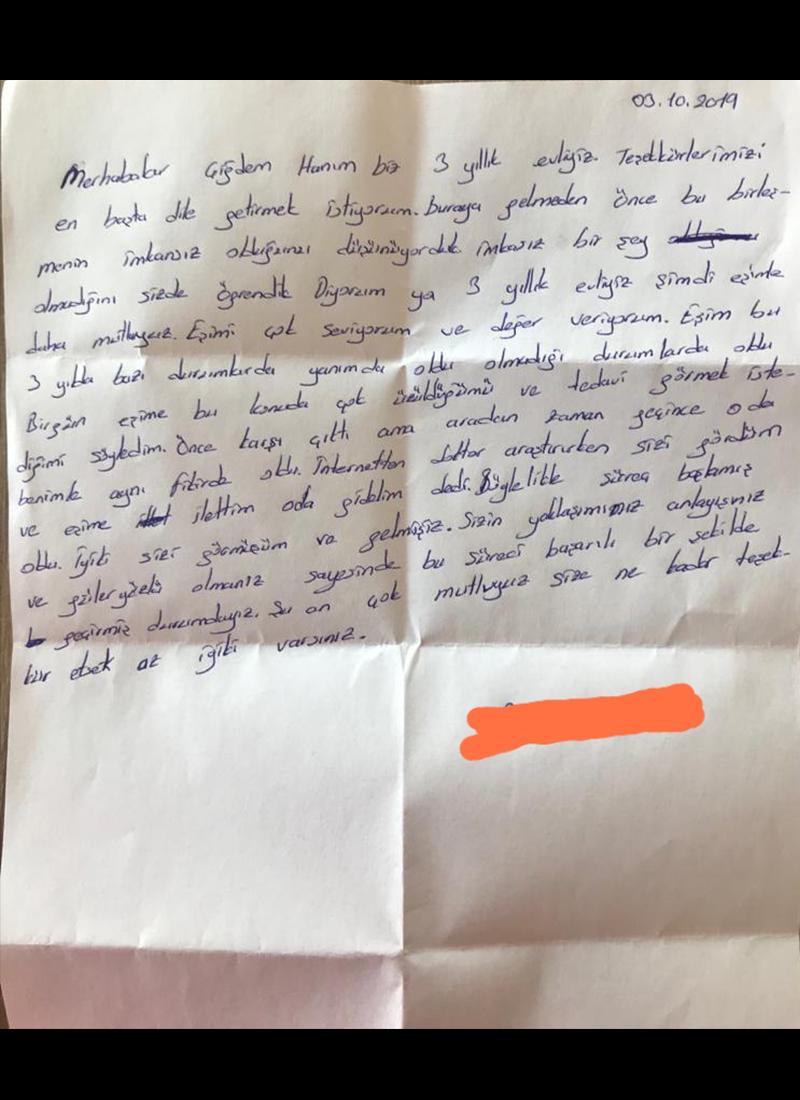 03.10.2019
Merhabalar Çiğdem Hanım biz 3 yıllık evliyiz. Teşekkürlerimizi
en başta dile getirmek istiyorum. buraya gelmeden önce bu birleş-
menin imkansız olduğunu düşünüyorduk imkasız bir şey
olmadığını sizde öğrendik Diyorum ya 3 yıllık evliyiz şimdi eşimle
daha mutluyuz. Eşimi çok seviyorum ve değer veriyorum. Eşim bu
3 yılda bazı durumlarda yanımda oldu olmadığı durumlarda oldu
Birgün eşime bu konuda çok üzüldüğümü ve tedavi görmek iste-
diğimi söyledim. Önce karşı çıktı ama aradan zaman geçince o da
benimle aynı fikirde oldu. İnternetten doktor araştırırken sizi gördüm
ve eşime ilettim oda gidelim dedi. Böylelikle süreç başlamış
oldu. İyiki sizi görmüşüm ve gelmişiz. Sizin yaklaşımınız anlayışınız
ve güler yüzlü olmanız sayesinde bu süreci başarılı bir şekilde
geçirmiş durumdayız. Şu an çok mutluyuz size ne kadar teşek-
kür etsek az iyiki varsınız.